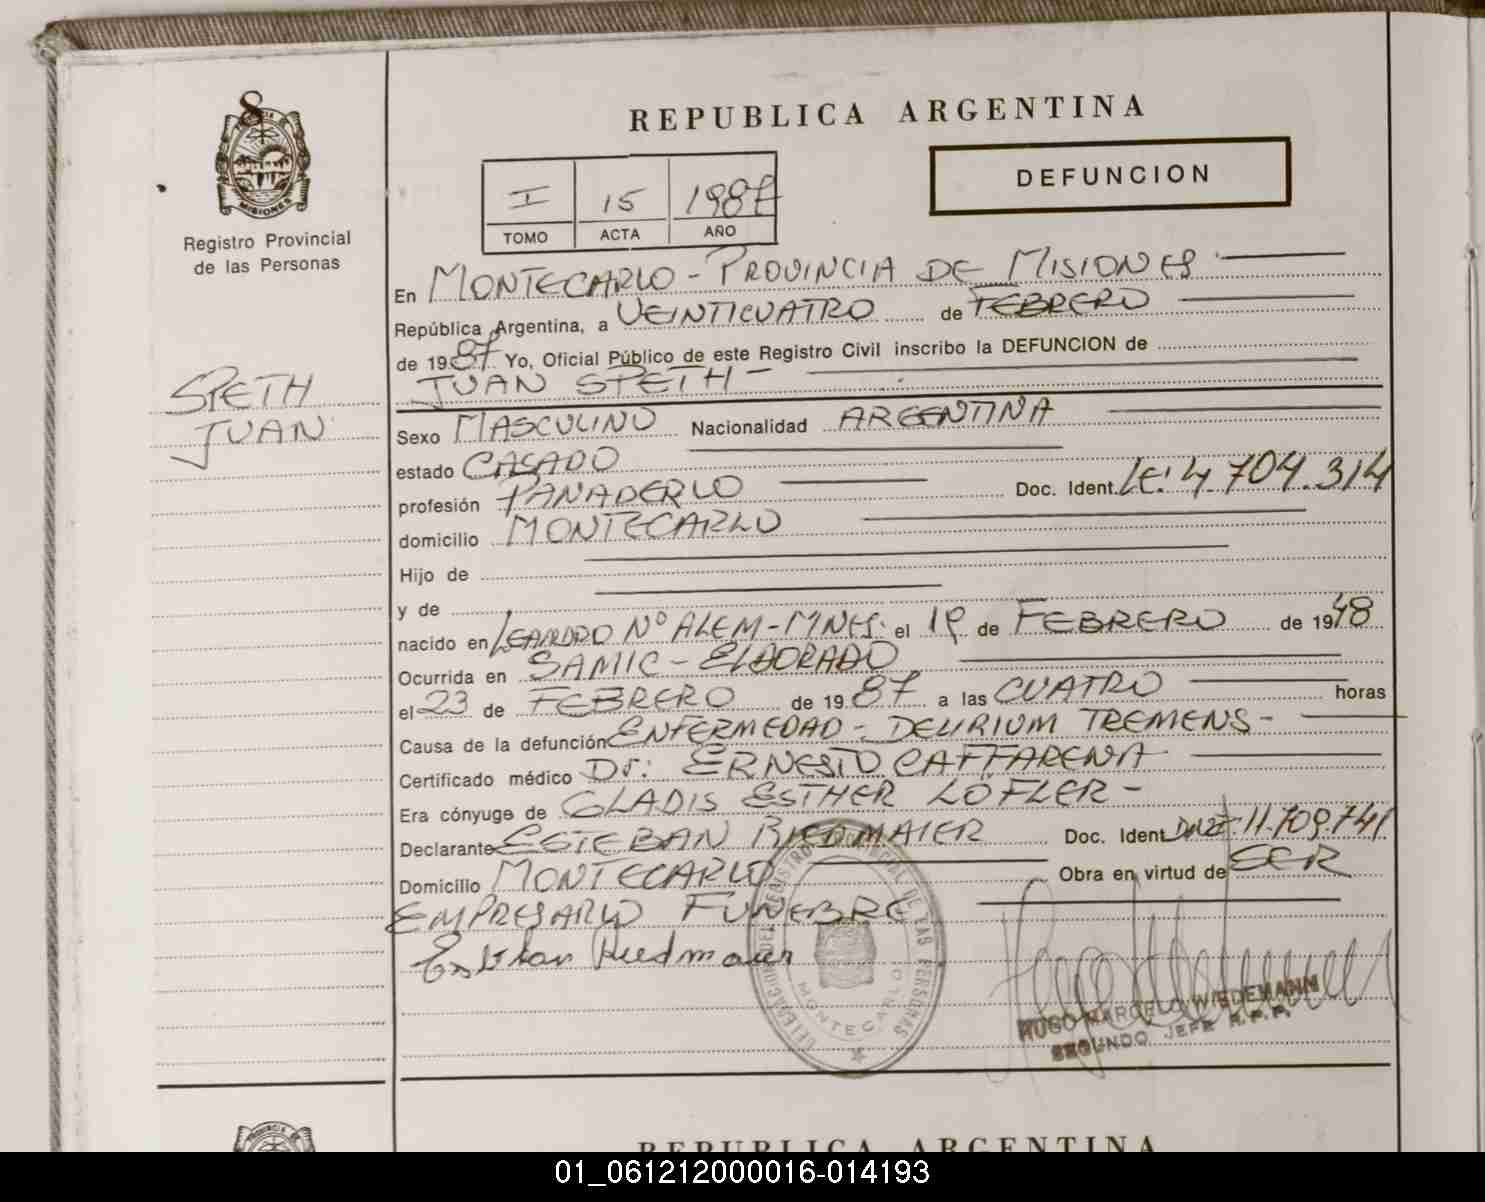 8
MISIONES
Registro Provincial
de las Personas
SPETH
JUAN
REPUBLICA ARGENTINA
I 15 1987
TOMO ACTA AÑO
DEFUNCION
En MONTECARLO - PROVINCIA DE MISIONES
República Argentina, a VEINTICUATRO de FEBRERO
de 1987 Yo, Oficial Público de este Registro Civil inscribo la DEFUNCION de
JUAN SPETH -
Sexo MASCULINO Nacionalidad ARGENTINA
estado CASADO
profesión PANADERO Doc. Ident. LE: 4.704.314
domicilio MONTECARLO
Hijo de
y de
nacido en LEANDRO Nº ALEM - MNES. el 19 de FEBRERO de 1948
Ocurrida en SAMIC - ELDORADO
el 23 de FEBRERO de 1987 a las CUATRO horas
Causa de la defunción ENFERMEDAD - DELIRIUM TREMENS -
Certificado médico Dr: ERNESTO CAFFARENA
Era cónyuge de GLADIS ESTHER LÖFLER -
Declarante ESTEBAN RIEDMAIER Doc. Ident. DNI: 11.709.741
Domicilio MONTECARLO Obra en virtud de SER
EMPRESARIO FUNEBRE
Esteban Riedmaier
DELEGACION DEL REGISTRO PROVINCIAL DE LAS PERSONAS
MONTECARLO
HUGO MARCELO WIEDEMANN
SEGUNDO JEFE R.P.P.
REPUBLICA ARGENTINA
01_061212000016-014193